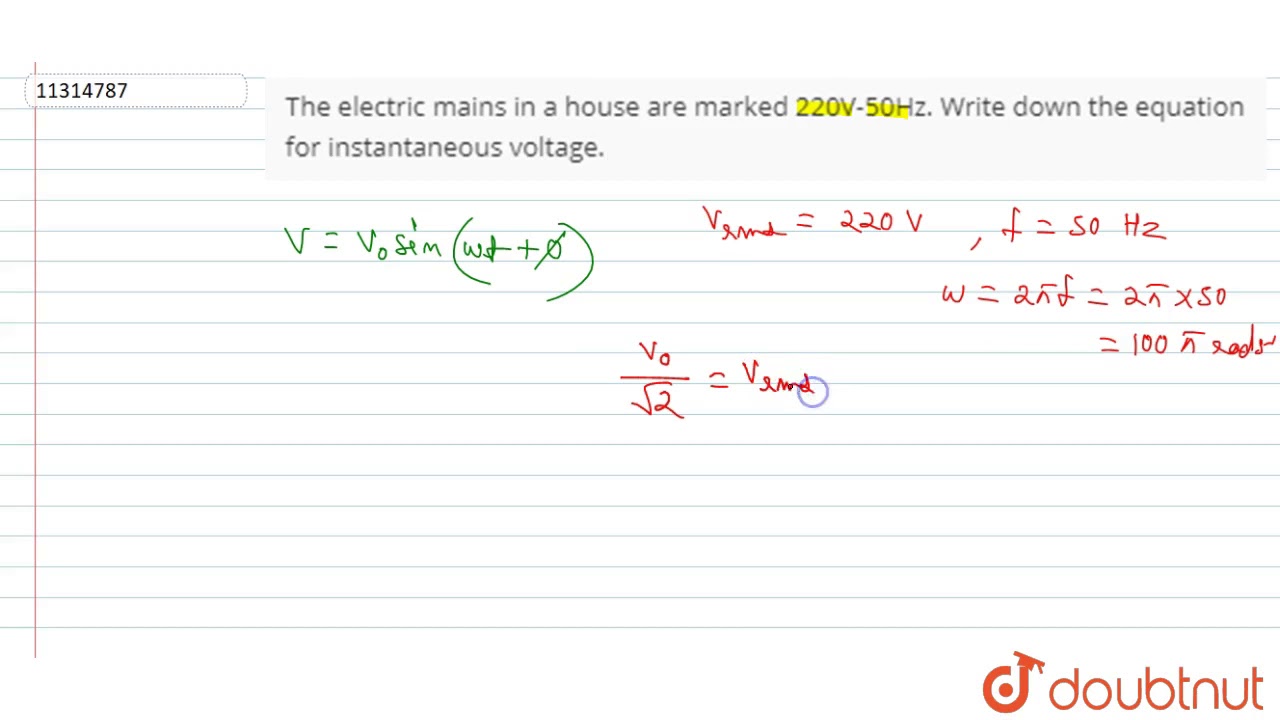 11314787
The electric mains in a house are marked 220V-50Hz. Write down the equation
for instantaneous voltage.
V = V₀ sin (ωt + φ)
Vrms = 220 V , f = 50 Hz
ω = 2πf = 2π × 50
= 100 π rad/s
V₀/√2 = Vrms
doubtnut